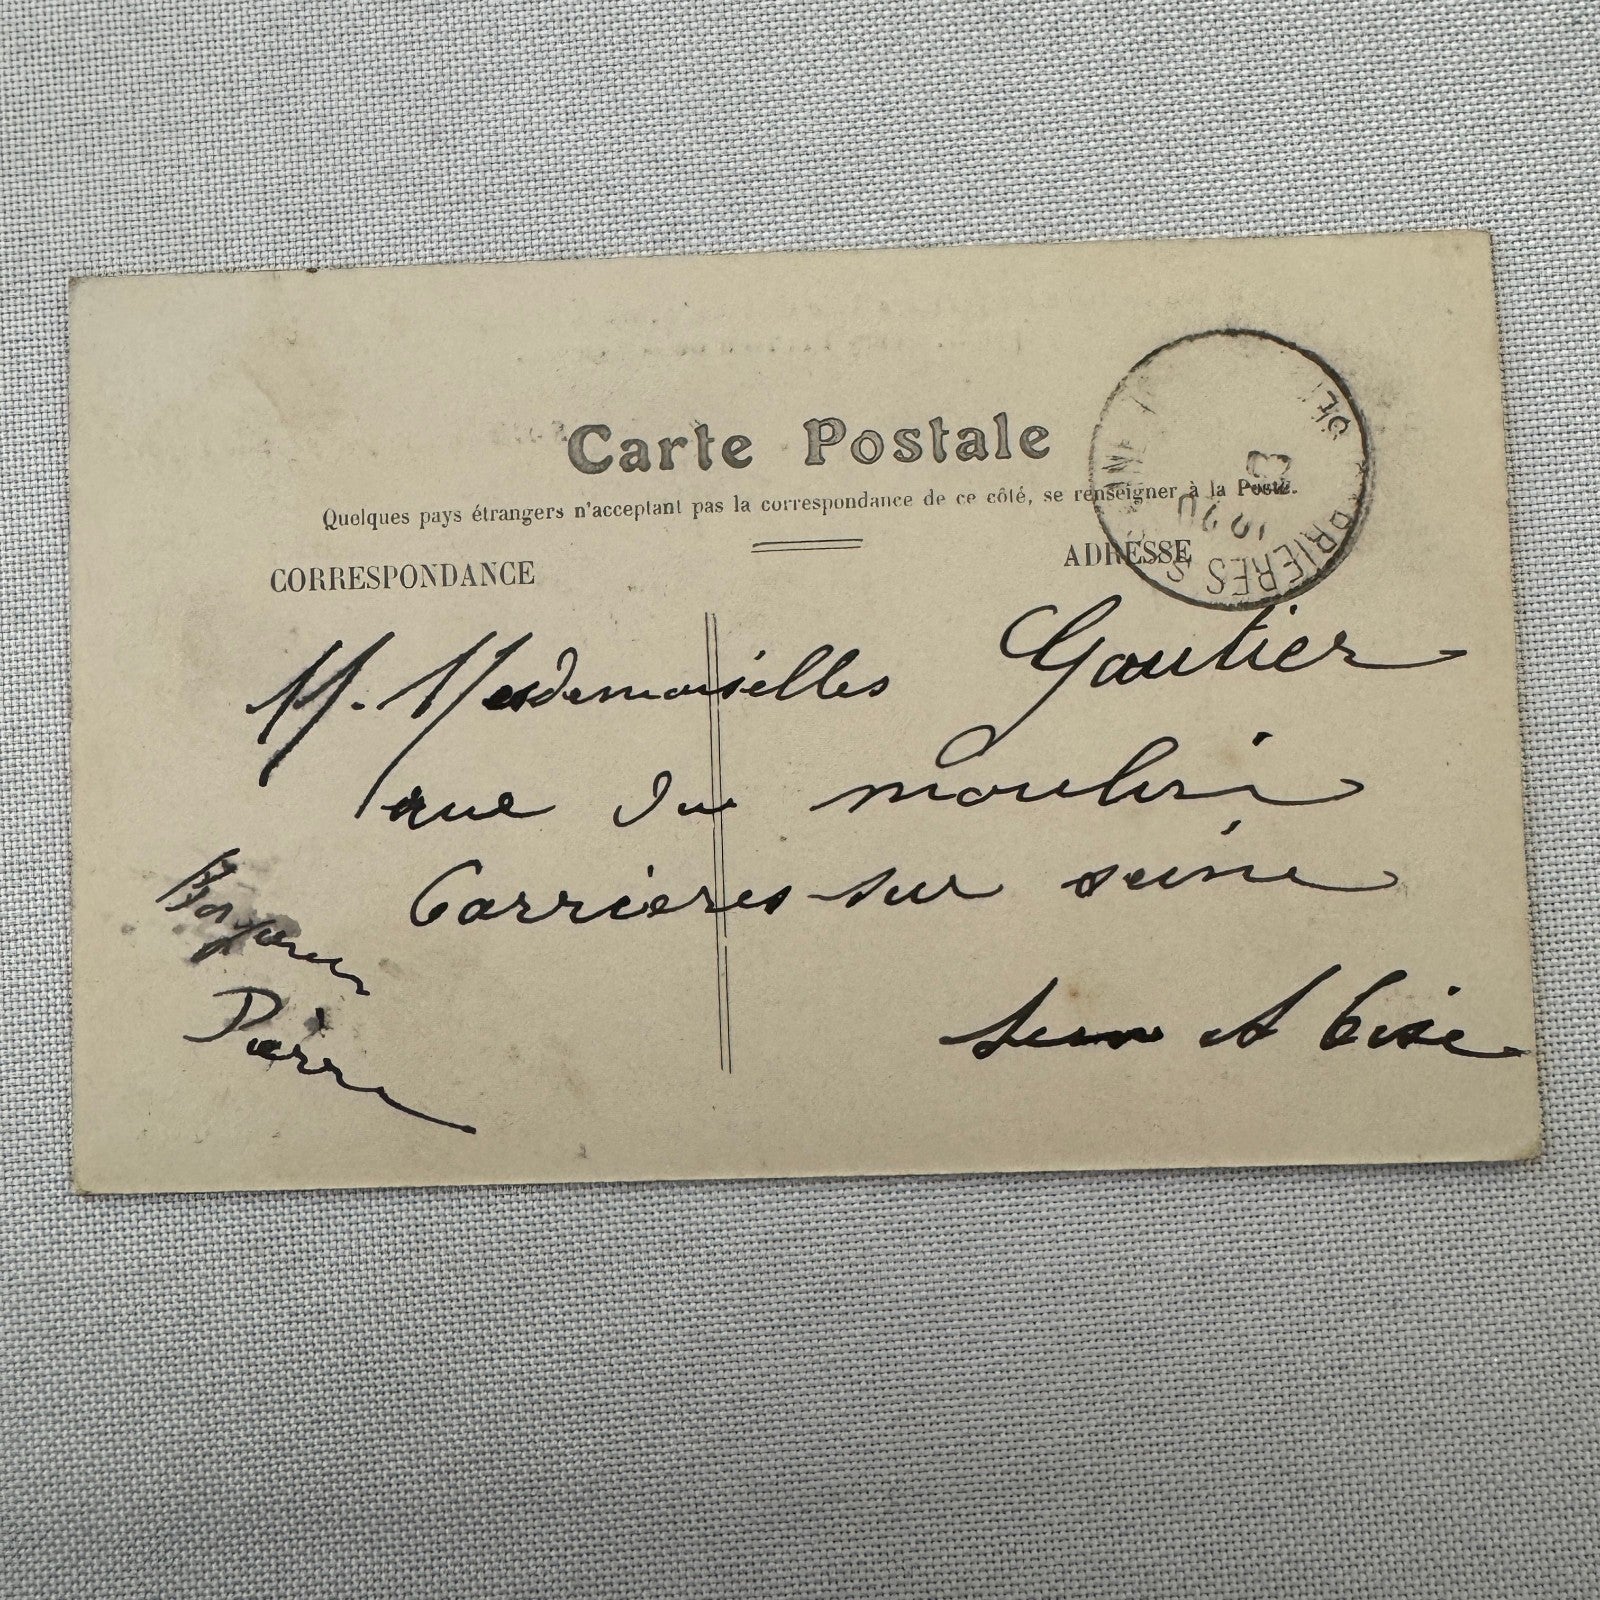 Carte Postale
Quelques pays étrangers n'acceptant pas la correspondance de ce côté, se renseigner à la Poste.
CORRESPONDANCE
ADRESSE
M. Mesdemoiselles Gautier
rue du moulin
Carrières-sur seine
Seine et Oise
Pierre